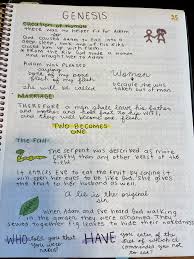 GENESIS
25
Creation of Human
there was no helper fit for Adam
God caused Adam to fall into a
deep sleep, took one of his ribs
closed him up with flesh
Adam was pleased
saying
bone of my bone
flesh of my flesh
she will be called
Women
because she was
taken out of man
Marriage
THEREFORE a man shall leave his father
and mother and hold fast to his wife,
and they will become one flesh
TWO BECOMES
ONE
The Fall
The serpent was described as more
crafty than any other beast of the
It entices Eve to eat the fruit by saying it
will open her eyes to be like God. She gives
the fruit to her husband as well.
A lie is the original
sin
When Adam and Eve heard God walking
in the garden, they were ashamed. They
sewed together fig leaves to hide their nakedness
WHO told you that
you were
naked?
HAVE you eaten of the
tree of which I
commanded you
not to eat?